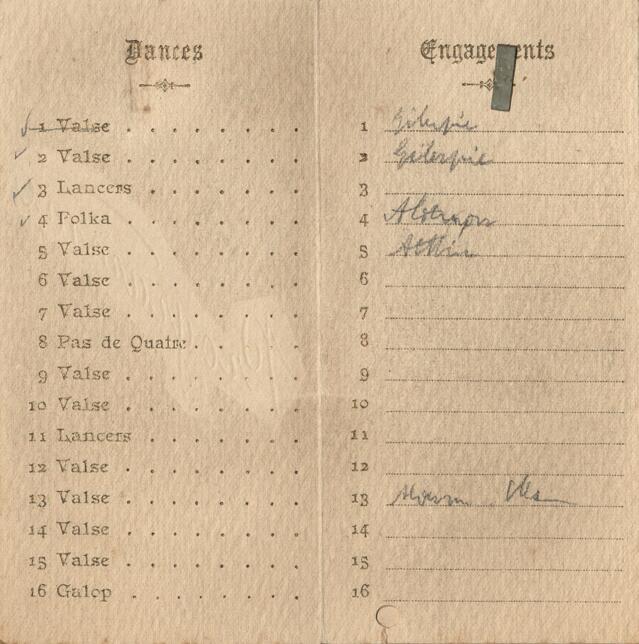 Dances
1 Valse
2 Valse
3 Lancers
4 Polka
5 Valse
6 Valse
7 Valse
8 Pas de Quatre
9 Valse
10 Valse
11 Lancers
12 Valse
13 Valse
14 Valse
15 Valse
16 Galop
Engagements
1 Gillespie
2 Gillespie
3
4
5
6
7
8
9
10
11
12
13
14
15
16